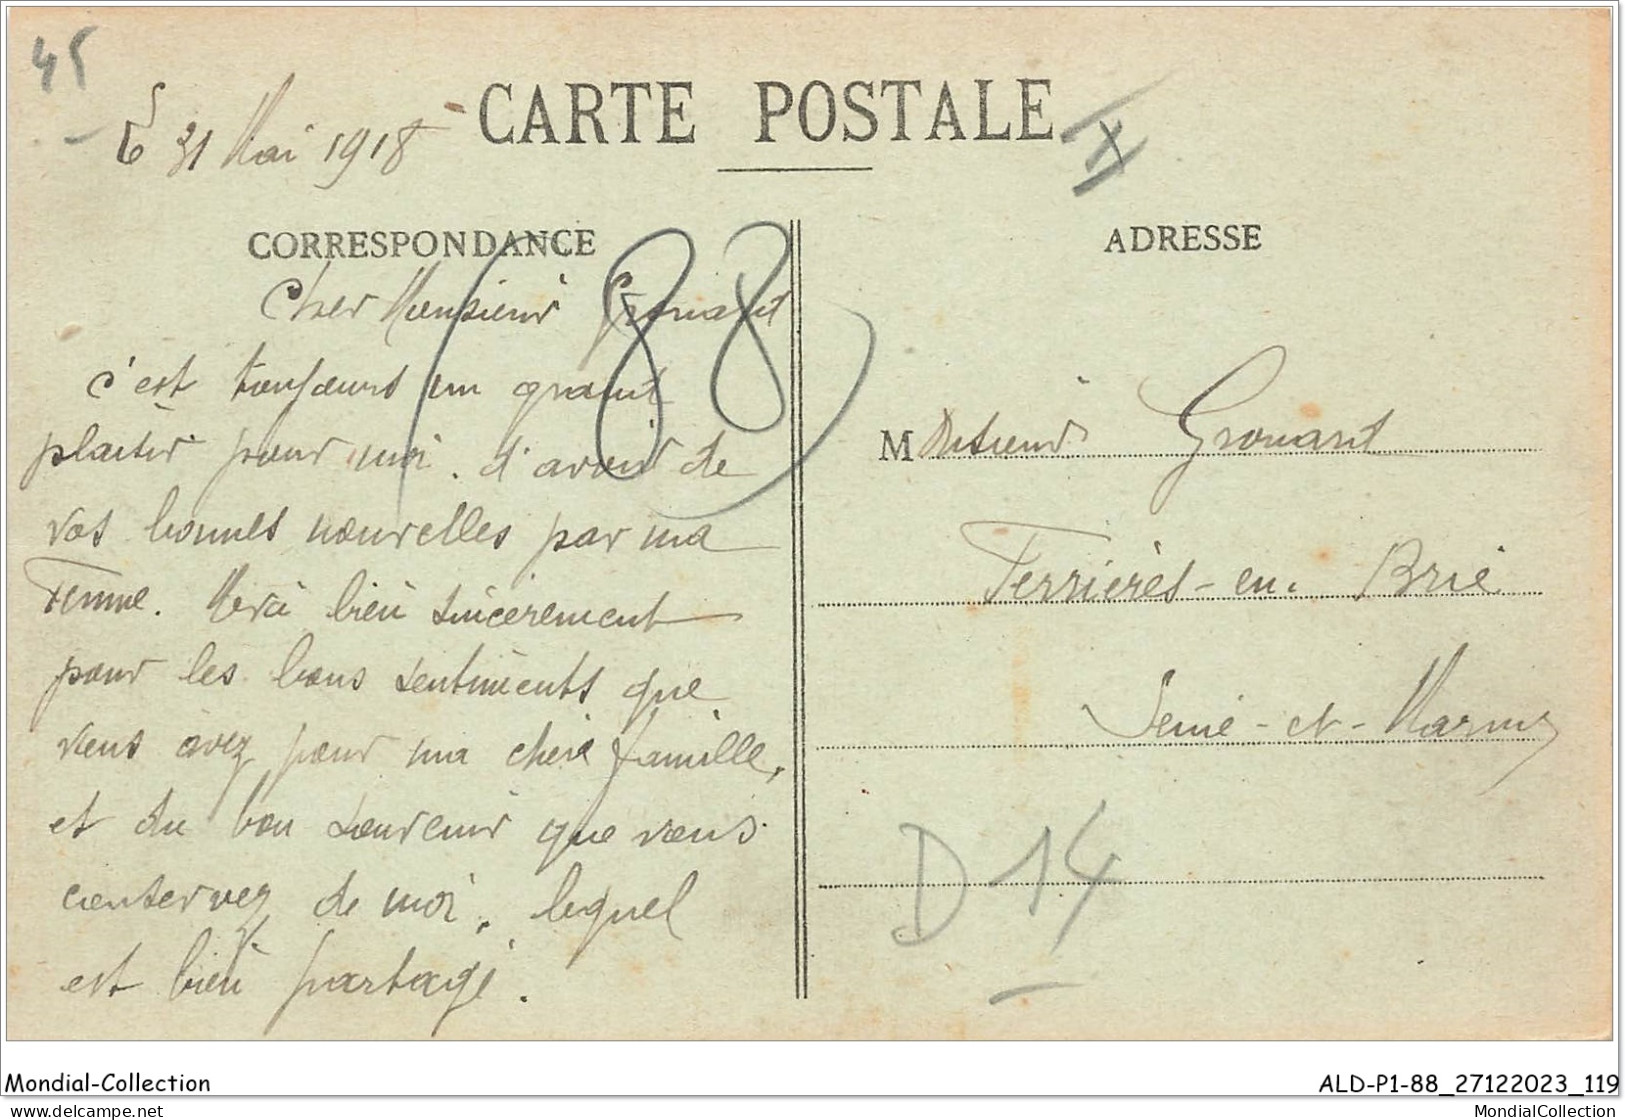 45
CARTE POSTALE
31 Mai 1918
X
CORRESPONDANCE
ADRESSE
(88)
Cher Monsieur Grouard
c'est toujours un grand
plaisir pour moi. d'avoir de
vos bonnes nouvelles par ma
Femme. Merci bien sincèrement
pour les bons sentiments que
vous avez pour ma chère famille,
et du bon souvenir que vous
conservez de moi, lequel
est bien partagé.
Monsieur Grouard
Ferrières-en-Brie
Seine-et-Marne
D 14
Mondial-Collection
ALD-P1-88_27122023_119
delcampe.net
MondialCollection